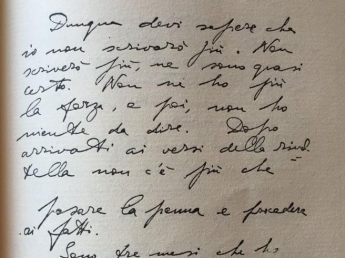 Dunque devi sapere che
io non scriverò più. Non
scriverò più, ne sono quasi
certo. Non ne ho più
la forza, e poi, non ho
niente da dire. Dopo
arrivati ai versi della rivol=
tella non c'è più che
posare la penna e procedere
ai fatti.
Sono tre mesi che ho